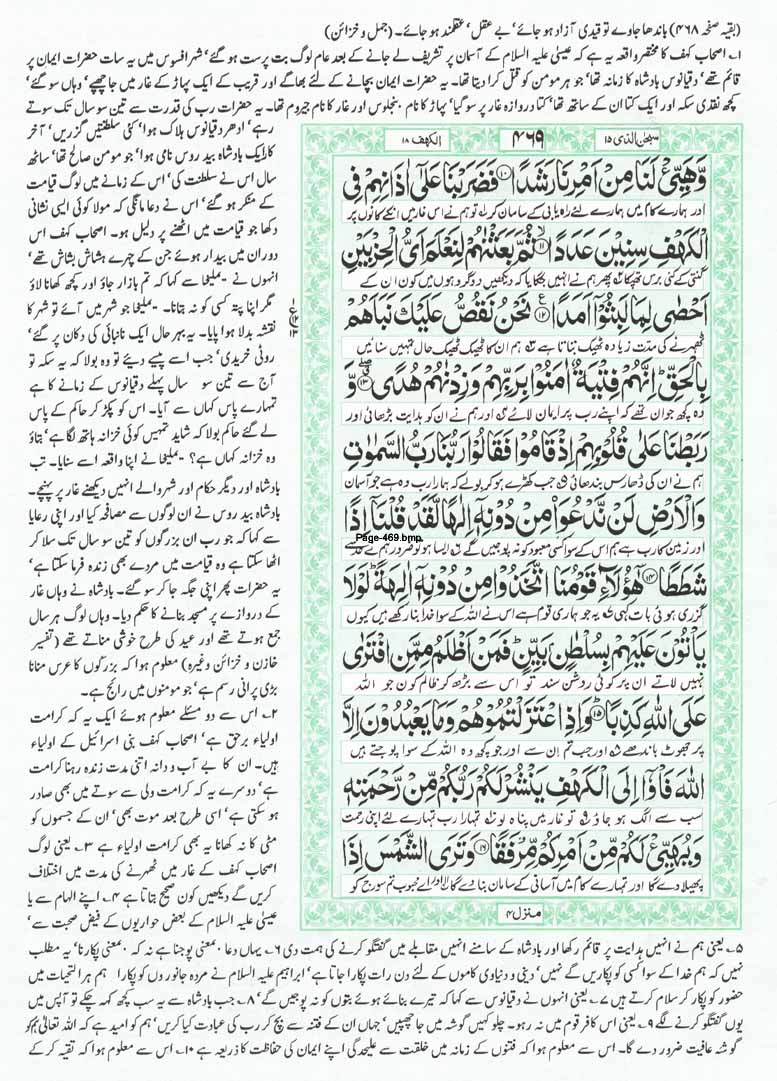 (بقیہ صفحہ ۴۶۸) باندھا جاوے تو قیدی آزاد ہو جائے' بے عقل' عقلمند ہو جائے۔ (جمل و خزائن)
۱۔ اصحاب کہف کا مختصر واقعہ یہ ہے کہ عیسیٰ علیہ السلام کے آسمان پر تشریف لے جانے کے بعد عام لوگ بت پرست ہو گئے' شہر افسوس میں یہ سات حضرات ایمان پر
قائم تھے' دقیانوس بادشاہ کا زمانہ تھا' جو ہر مومن کو قتل کرا دیتا تھا۔ یہ حضرات ایمان بچانے کے لئے بھاگے اور قریب کے ایک پہاڑ کے غار میں جا چھپے' وہاں سو گئے'
کچھ نقدی سکہ اور ایک کتا ان کے ساتھ تھا' کتا دروازہ غار پر سو گیا' پہاڑ کا نام بنجلوس اور غار کا نام جیروم تھا۔ یہ حضرات رب کی قدرت سے تین سو سال تک سوتے
رہے' ادھر دقیانوس ہلاک ہوا' کئی سلطنتیں گزریں' آخر
کار ایک بادشاہ بید روس نامی ہوا' جو مومن صالح تھا' ساٹھ
سال اس نے سلطنت کی' اس کے زمانے میں لوگ قیامت
کے منکر ہو گئے' اس نے دعا مانگی کہ مولا کوئی ایسی نشانی
دکھا جو قیامت میں اٹھنے پر دلیل ہو۔ اصحاب کہف اس
دوران میں بیدار ہوئے جن کے چہرے ہشاش بشاش تھے'
انہوں نے یملیخا سے کہا کہ تم بازار جاؤ اور کچھ کھانا لاؤ
مگر اپنا پتہ کسی کو نہ بتانا۔ یملیخا جو شہر میں آئے تو شہر کا
نقشہ بدلا ہوا پایا۔ یہ بہر حال ایک نانبائی کی دکان پر گئے'
روٹی خریدی' جب اسے پیسے دیئے تو وہ بولا کہ یہ سکہ تو
آج سے تین سو سال پہلے دقیانوس کے زمانے کا ہے
تمہارے پاس کہاں سے آیا۔ اس کو پکڑ کر حاکم کے پاس
لے گئے حاکم بولا کہ شاید تمہیں کوئی خزانہ ہاتھ لگا ہے' بتاؤ
وہ خزانہ کہاں ہے؟ یملیخا نے اپنا واقعہ اسے سنایا۔ تب
بادشاہ اور دیگر حکام اور شہر والے انہیں دیکھنے غار پر پہنچے۔
بادشاہ بید روس نے ان لوگوں سے مصافحہ کیا اور اپنی رعایا
سے کہا کہ جو رب ان بزرگوں کو تین سو سال تک سلا کر
اٹھا سکتا ہے وہ قیامت میں مردے بھی زندہ فرما سکتا ہے'
یہ حضرات پھر اپنی جگہ جا کر سو گئے۔ بادشاہ نے وہاں غار
کے دروازے پر مسجد بنانے کا حکم دیا۔ وہاں لوگ ہر سال
جمع ہوتے تھے اور عید کی طرح خوشی مناتے تھے (تفسیر
خازن و خزائن وغیرہ) معلوم ہوا کہ بزرگوں کا عرس منانا
بڑی پرانی رسم ہے' جو مومنوں میں رائج ہے۔
۲۔ اس سے دو مسئلے معلوم ہوئے ایک یہ کہ کرامت
اولیاء برحق ہے' اصحاب کہف بنی اسرائیل کے اولیاء
ہیں۔ ان کا بے آب و دانہ اتنی مدت زندہ رہنا کرامت
ہے' دوسرے یہ کہ کرامت ولی سے سوتے میں بھی صادر
ہو سکتی ہے' اسی طرح بعد موت بھی' ان کے جسموں کو
مٹی کا نہ کھانا یہ بھی کرامت اولیاء ہے ۳۔ یعنی لوگ
اصحاب کہف کے غار میں ٹھہرنے کی مدت میں اختلاف
کریں گے دیکھیں کون صحیح بتاتا ہے ۴۔ اپنے الہام سے یا
عیسیٰ علیہ السلام کے بعض حواریوں کے فیض صحبت سے'
سبحٰن الذی ۱۵
۴۶۹
الکہف ۱۸
وَّهَيِّئْ لَنَا مِنْ اَمْرِنَا رَشَدًا ۝۱۰ فَضَرَبْنَا عَلٰۤى اٰذَانِهِمْ فِى
اور ہمارے کام میں ہمارے لئے راہ یابی کے سامان کر تو ہم نے اس غار میں انکے کانوں پر
الْكَهْفِ سِنِيْنَ عَدَدًا ۝۱۱ ثُمَّ بَعَثْنٰهُمْ لِنَعْلَمَ اَىُّ الْحِزْبَيْنِ
گنتی کے کئی برس تھپکا پھر ہم نے انہیں جگایا کہ دیکھیں دو گروہوں میں کون ان کے
اَحْصٰى لِمَا لَبِثُوْۤا اَمَدًا ۝۱۲ نَحْنُ نَقُصُّ عَلَيْكَ نَبَاَهُمْ
ٹھہرنے کی مدت زیادہ ٹھیک بتاتا ہے ہم ان کا ٹھیک ٹھیک حال تمہیں سنائیں
بِالْحَقِّ ؕ اِنَّهُمْ فِتْيَةٌ اٰمَنُوْا بِرَبِّهِمْ وَزِدْنٰهُمْ هُدًى ۝۱۳ وَّ
وہ کچھ جوان تھے کہ اپنے رب پر ایمان لائے اور ہم نے ان کو ہدایت بڑھائی اور
رَبَطْنَا عَلٰى قُلُوْبِهِمْ اِذْ قَامُوْا فَقَالُوْا رَبُّنَا رَبُّ السَّمٰوٰتِ
ہم نے ان کی ڈھارس بندھائی جب کھڑے ہو کر بولے کہ ہمارا رب وہ ہے جو آسمان
وَالْاَرْضِ لَنْ نَّدْعُوَا۟ مِنْ دُوْنِهٖۤ اِلٰهًا لَّقَدْ قُلْنَاۤ اِذًا
Page-469.bmp
اور زمین کا رب ہے ہم اس کے سوا کسی معبود کو نہ پوجیں گے ایسا ہو تو ضرور ہم نے حد سے
شَطَطًا ۝۱۴ هٰۤؤُلَآءِ قَوْمُنَا اتَّخَذُوْا مِنْ دُوْنِهٖۤ اٰلِهَةً ؕ لَوْلَا
گزری ہوئی بات کہی یہ جو ہماری قوم ہے اس نے اللہ کے سوا خدا بنا رکھے ہیں کیوں
يَاْتُوْنَ عَلَيْهِمْ بِسُلْطٰنٍۭ بَيِّنٍ ؕ فَمَنْ اَظْلَمُ مِمَّنِ افْتَرٰى
نہیں لاتے ان پر کوئی روشن سند تو اس سے بڑھ کر ظالم کون جو اللہ
عَلَى اللّٰهِ كَذِبًا ۝۱۵ وَاِذِ اعْتَزَلْتُمُوْهُمْ وَمَا يَعْبُدُوْنَ اِلَّا
پر جھوٹ باندھے اور جب تم ان سے اور جو کچھ وہ اللہ کے سوا پوجتے ہیں
اللّٰهَ فَاْوٗۤا اِلَى الْكَهْفِ يَنْشُرْ لَكُمْ رَبُّكُمْ مِّنْ رَّحْمَتِهٖ
سب سے الگ ہو جاؤ تو غار میں پناہ لو تمہارا رب تمہارے لئے اپنی رحمت
وَيُهَيِّئْ لَكُمْ مِّنْ اَمْرِكُمْ مِّرْفَقًا ۝۱۶ وَتَرَى الشَّمْسَ اِذَا
پھیلا دے گا اور تمہارے کام میں آسانی کے سامان بنا دے گا اور اے محبوب تم سورج کو
منزل ۴
۵۔ یعنی ہم نے انہیں ہدایت پر قائم رکھا اور بادشاہ کے سامنے انہیں مقابلے میں گفتگو کرنے کی ہمت دی ۶۔ یہاں دعا بمعنی پوجنا ہے نہ کہ بمعنی پکارنا' یہ مطلب
نہیں کہ ہم خدا کے سوا کسی کو پکاریں گے نہیں' دینی و دنیاوی کاموں کے لئے دن رات پکارا جاتا ہے' ابراہیم علیہ السلام نے مردہ جانوروں کو پکارا ہم ہر التحیات میں
حضور کو پکار کر سلام کرتے ہیں ۷۔ یعنی انہوں نے دقیانوس سے کہا کہ تیرے بنائے ہوئے بتوں کو نہ پوجیں گے' ۸۔ جب بادشاہ سے یہ سب کچھ کہہ چکے تو آپس میں
یوں گفتگو کرنے لگے ۹۔ یعنی اس کافر قوم میں نہ رہو۔ چلو کہیں گوشہ میں جا چھپیں' جہاں ان کے فتنہ سے بچ کر رب کی عبادت کیا کریں' ہم کو امید ہے کہ اللہ تعالیٰ ہم کو
گوشہ عافیت ضرور دے گا۔ اس سے معلوم ہوا کہ فتنوں کے زمانہ میں خلقت سے علیحدگی اپنے ایمان کی حفاظت کا ذریعہ ہے ۱۰۔ اس سے معلوم ہوا کہ تقیہ کر کے